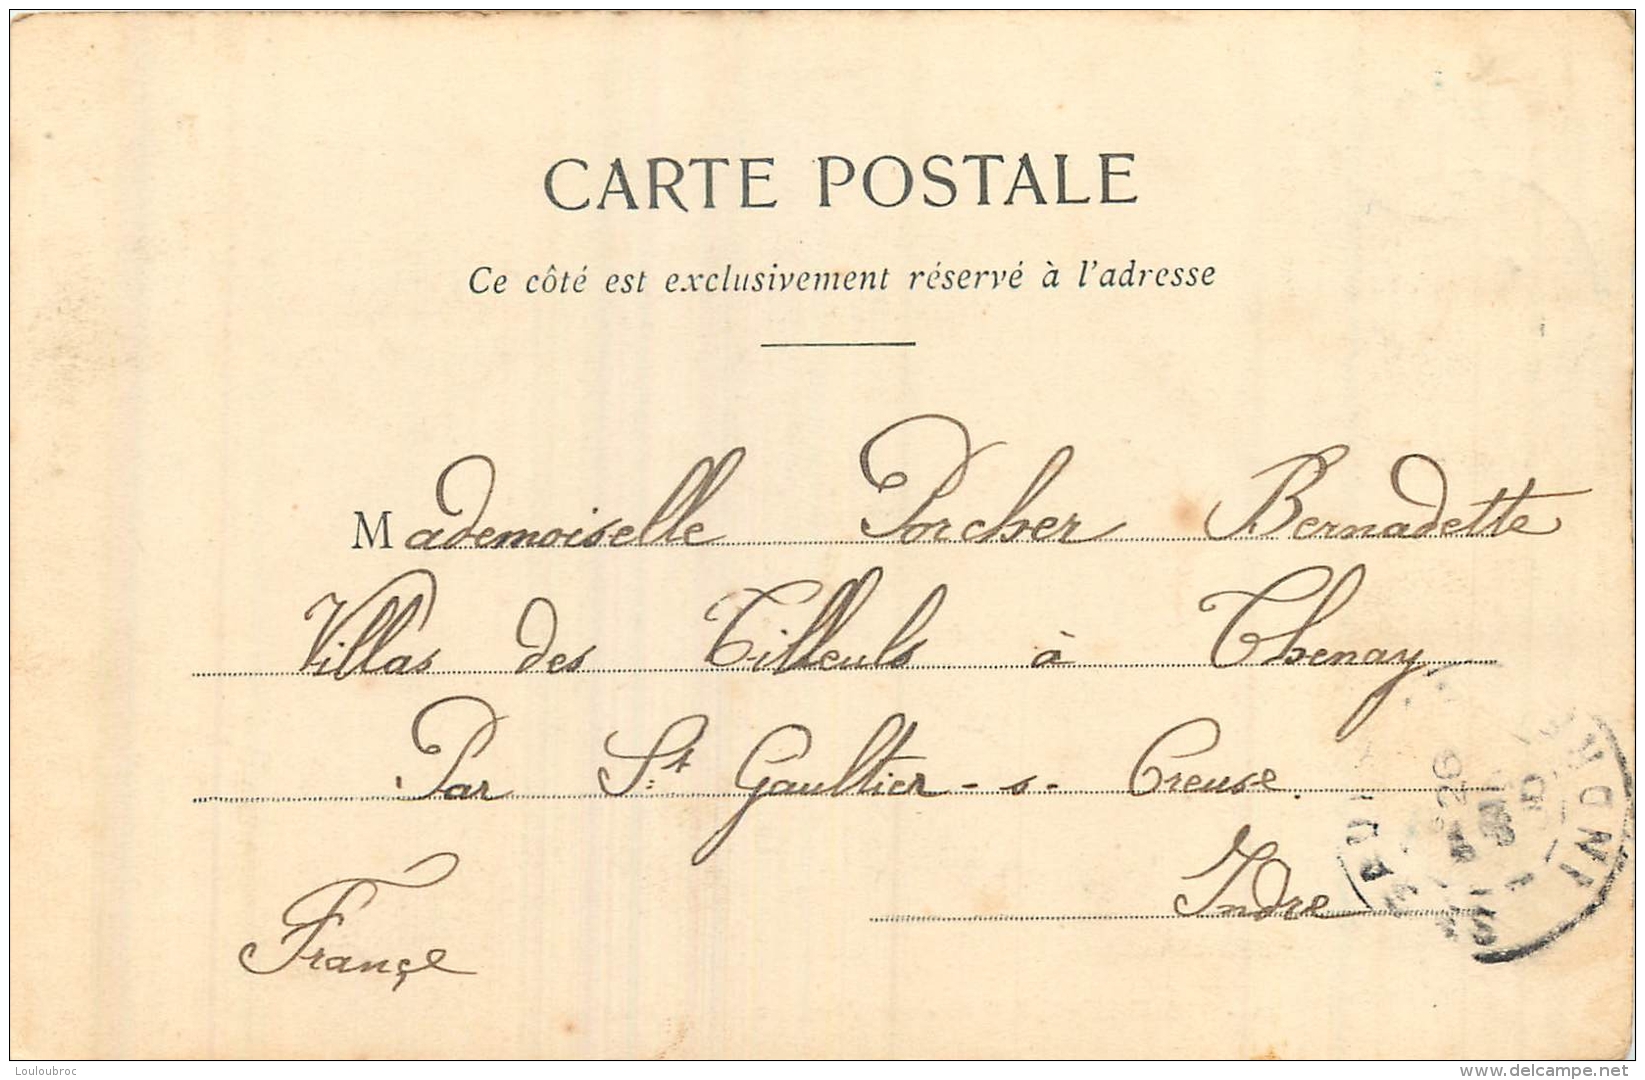 CARTE POSTALE
Ce côté est exclusivement réservé à l'adresse
Mademoiselle Porcher Bernadette
Villas des Tilleuls à Thenay
Par St Gaultier-s-Creuse.
Indre
Françe
26
INDRE
Louloubroc
www.delcampe.net